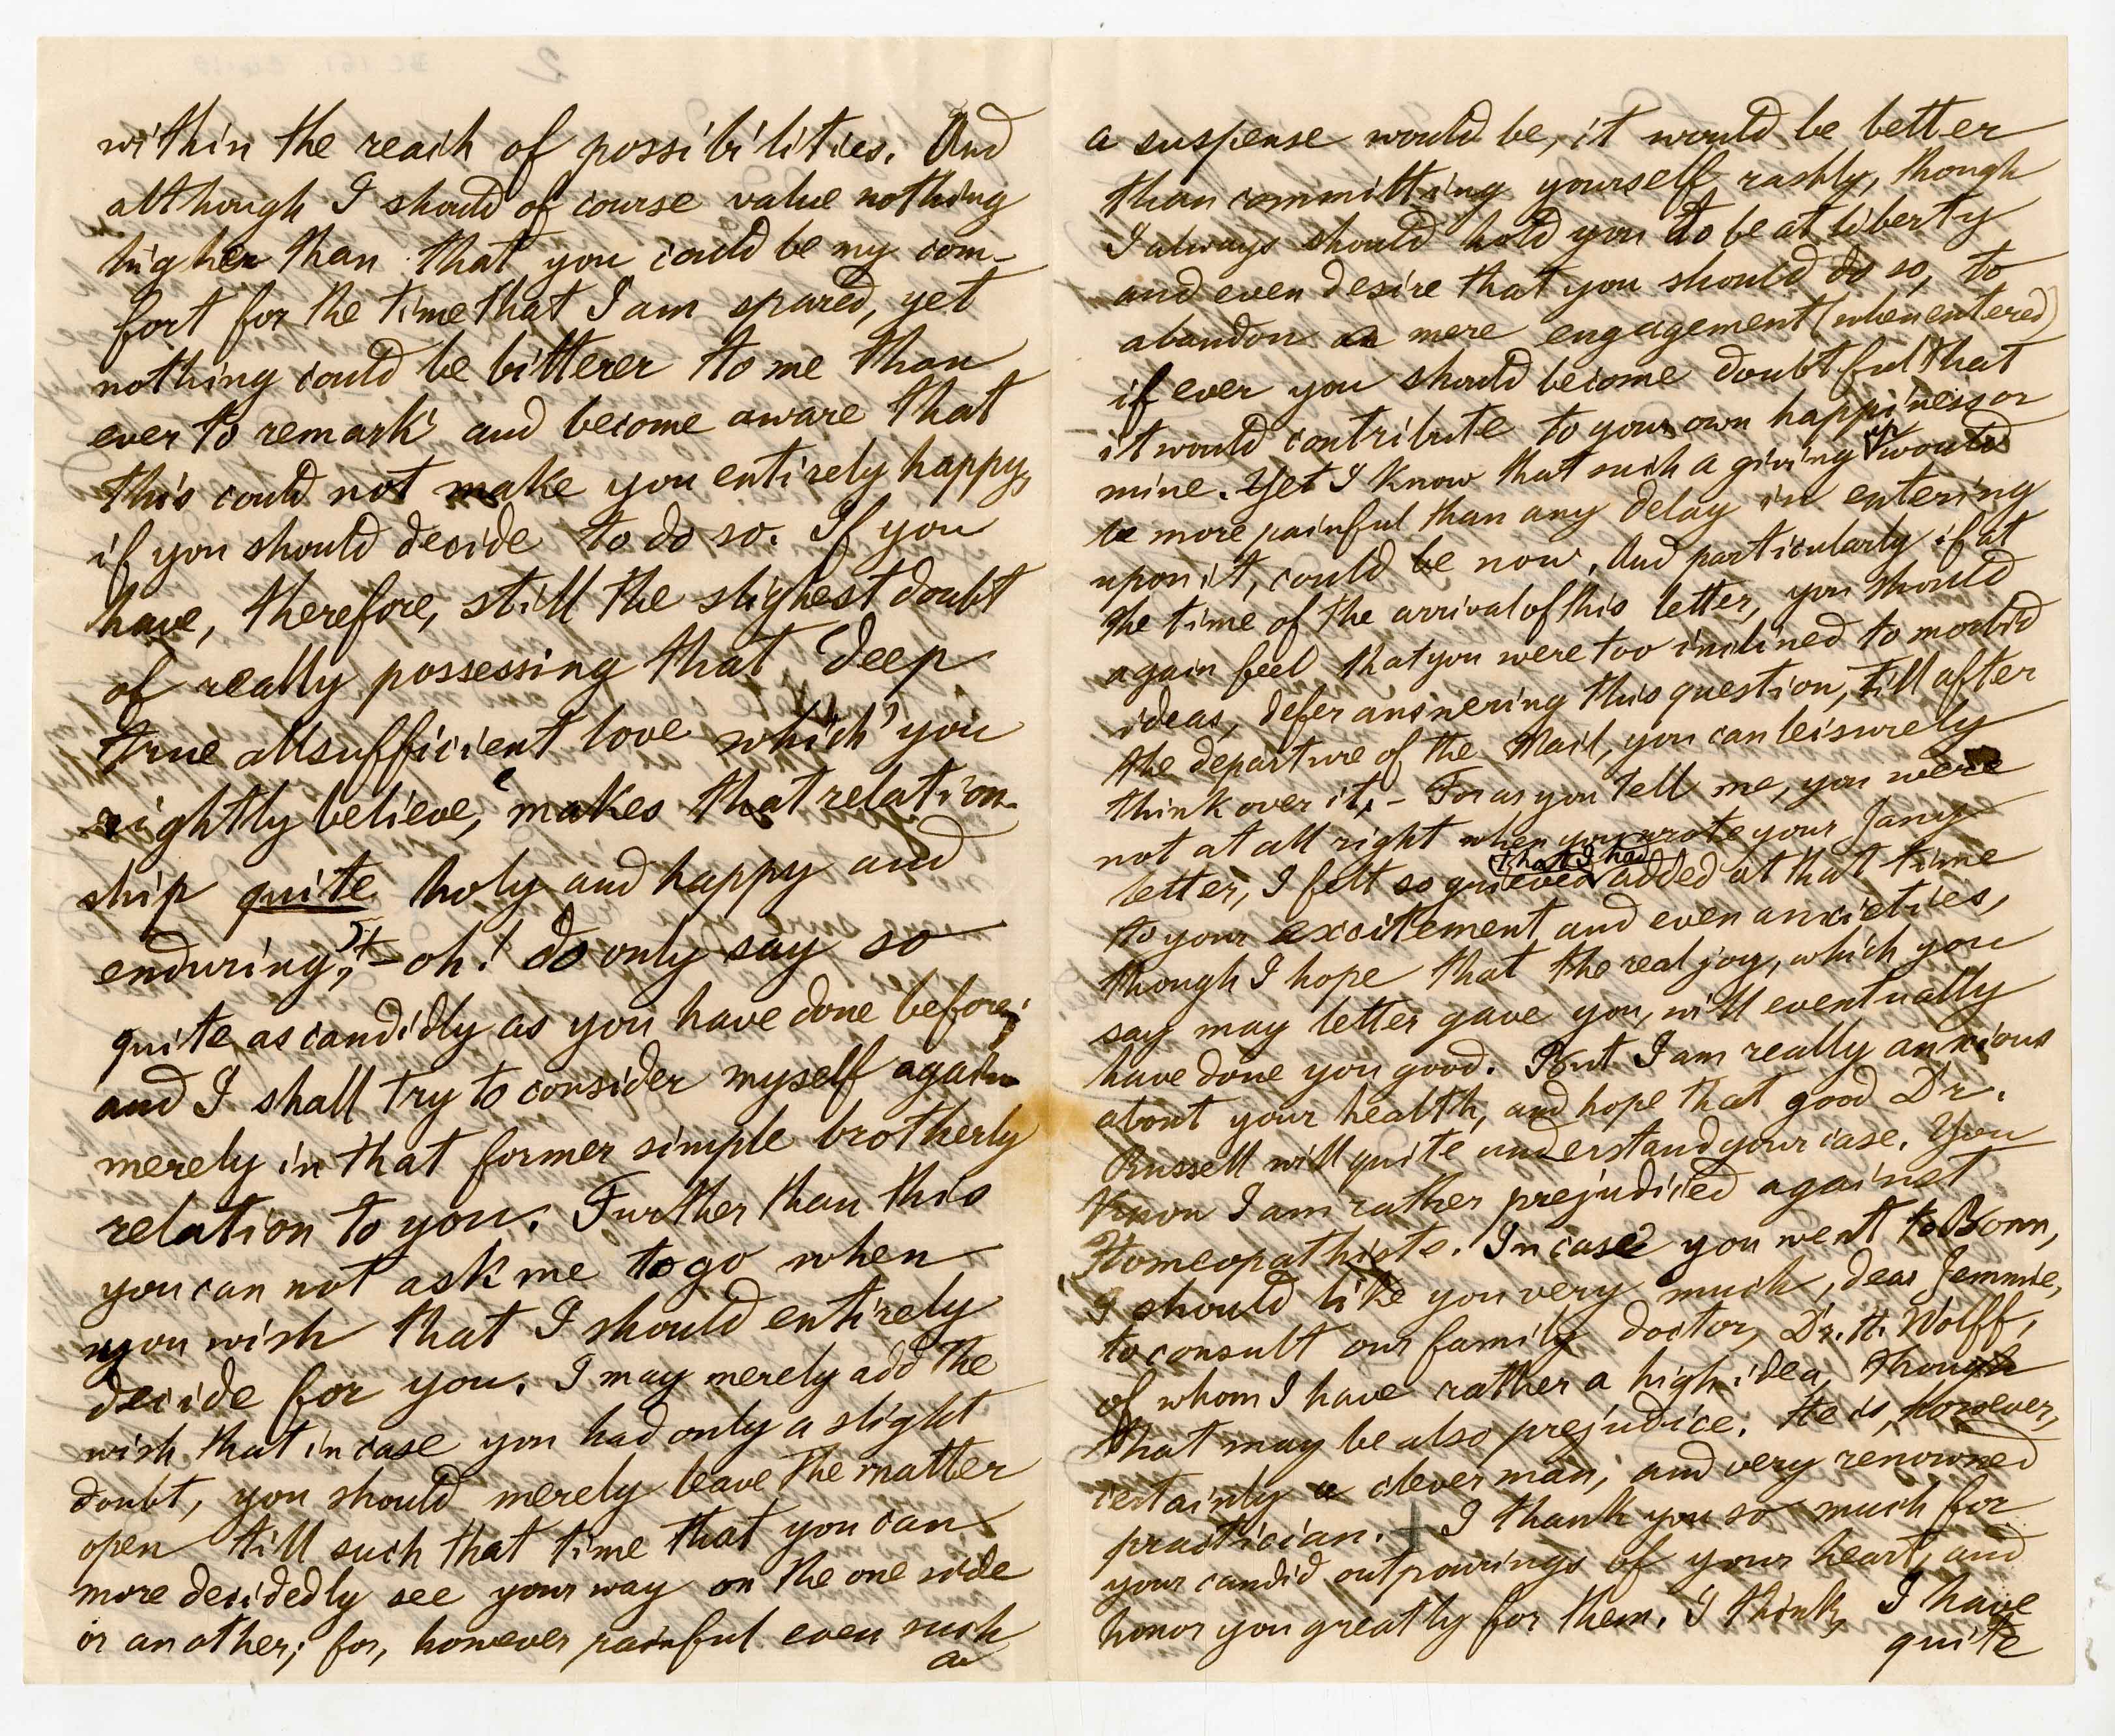 within the reach of possibilities. And
although I should of course value nothing
higher than that you could be my com-
fort for the time that I am spared, yet
nothing could be bitterer to me than
ever to remark and become aware that
this could not make you entirely happy,
if you should decide to do so. If you
have, therefore, still the slighest doubt
of really possessing that "deep
true allsufficient love which" you
rightly believe, "makes that relation-
ship quite holy and happy and
enduring", - oh! do only say so
quite as candidly as you have done before;
and I shall try to consider myself again
merely in that former simple brotherly
relation to you. Further than this
you can not ask me to go when
you wish that I should entirely
decide for you. I may merely add the
wish that in case you had only a slight
doubt, you should merely leave the matter
open till such that time that you can
more decidedly see your way on the one side
or another; for, however painful even such
a
a suspense would be, it would be better
than committing yourself rashly, though
I always should hold you to be at liberty
and even desire that you should do so, to
abandon a mere engagement (when entered)
if ever you should become doubtful that
it would contribute to your own happiness or
mine. Yet I know that such a giving up would
be more painful than any delay in entering
upon it, could be now. And particularly if at
the time of the arrival of this letter, you should
again feel that you were too inclined to morbid
ideas, defer answering this question, till after
the departure of the Mail, you can leisurely
think over it. - For as you tell me, you were
not at all right when you wrote your Jany
letter, I felt so grieved that I had added at that time
to your excitement and even anxieties,
though I hope that the real joy, which you
say may letter gave you, will eventually
have done you good. But I am really anxious
about your health, and hope that good Dr.
Russell will quite understand your case. You
know I am rather prejudiced against
Homeopathists. In case you went to Bonn,
I should like you very much, dear Jemmie,
to consult our family doctor, Dr. H. Wolff,
of whom I have rather a high idea, though
that may be also prejudice. He is, however,
certainly a clever man, and very renowned
practician. I thank you so much for
your candid outpourings of your heart, and
honor you greatly for them. I think, I have
quite